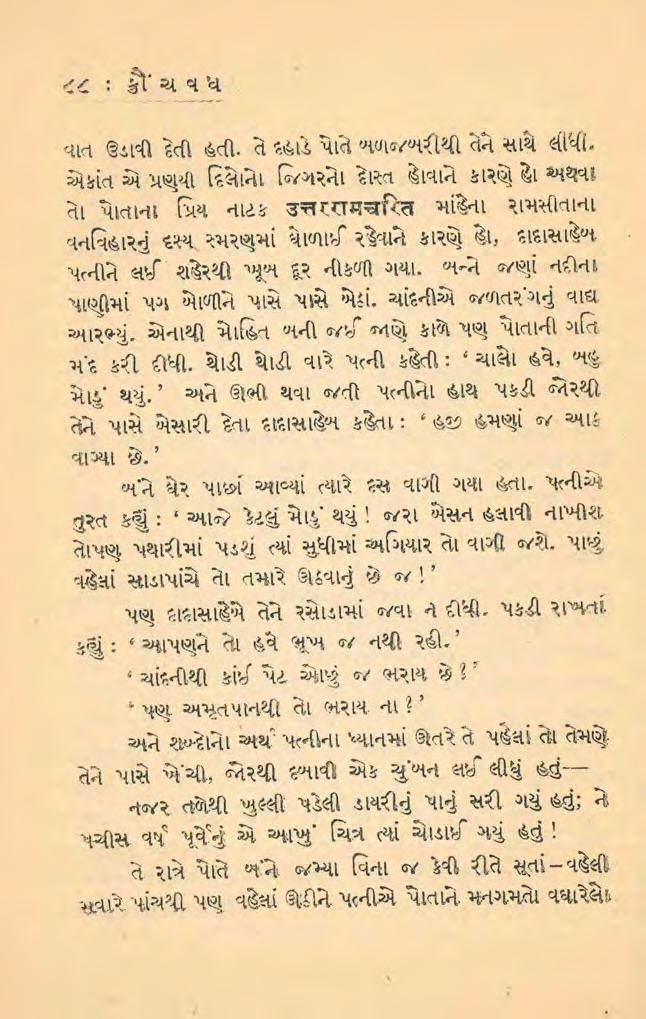 ૮૮ : ક્રૌંચવધ
વાત ઉડાવી દેતી હતી. તે દહાડે પોતે બળજબરીથી તેને સાથે લીધી.
એકાંત એ પ્રણયી દિલોનો જિગરનો દોસ્ત હોવાને કારણે હો અથવા
તો પોતાના પ્રિય નાટક उत्तररामचरित માંહેના રામસીતાના
વનવિહારનું દૃશ્ય સ્મરણમાં ઘોળાઈ રહેવાને કારણે હો, દાદાસાહેબ
પત્નીને લઈ શહેરથી ખૂબ દૂર નીકળી ગયા. બન્ને જણાં નદીના
પાણીમાં પગ બોળીને પાસે પાસે બેઠાં. ચાંદનીએ જળતરંગનું વાદ્ય
આરભ્યું. એનાથી મોહિત બની જઈ જાણે કાળે પણ પોતાની ગતિ
મંદ કરી દીધી. થોડી થોડી વારે પત્ની કહેતી : ‘ ચાલો હવે, બહુ
મોડું થયું.’ અને ઊભી થવા જતી પત્નીનો હાથ પકડી જોરથી
તેને પાસે બેસારી દેતા દાદાસાહેબ કહેતા : ‘ હજી હમણાં જ આઠ
વાગ્યા છે.’
બંને ઘેર પાછાં આવ્યાં ત્યારે દસ વાગી ગયા હતા. પત્નીએ
તુરત કહ્યું : ‘ આજે કેટલું મોડું થયું ! જરા બેસન હલાવી નાખીશ
તોપણ પથારીમાં પડશું ત્યાં સુધીમાં અગિયાર તો વાગી જશે. પાછું
વહેલાં સાડાપાંચે તો તમારે ઊઠવાનું છે જ !’
પણ દાદાસાહેબે તેને રસોડામાં જવા ન દીધી. પકડી રાખતાં
કહ્યું : ‘ આપણને તો હવે ભૂખ જ નથી રહી.’
‘ ચાંદનીથી કાંઈ પેટ ઓછું જ ભરાય છે ?’
‘ પણ અમૃતપાનથી તો ભરાય ના ?’
અને શબ્દોનો અર્થ પત્નીના ધ્યાનમાં ઊતરે તે પહેલાં તો તેમણે
તેને પાસે ખેંચી, જોરથી દબાવી એક ચુંબન લઈ લીધું હતું—
નજર તળેથી ખુલ્લી પડેલી ડાયરીનું પાનું સરી ગયું હતું; ને
પચીસ વર્ષ પૂર્વેનું એ આખું ચિત્ર ત્યાં ચોડાઈ ગયું હતું !
તે રાત્રે પોતે બંને જમ્યા વિના જ કેવી રીતે સૂતાં–વહેલી
સવારે પાંચથી પણ વહેલાં ઊઠીને પત્નીએ પોતાને મનગમતો વઘારેલો